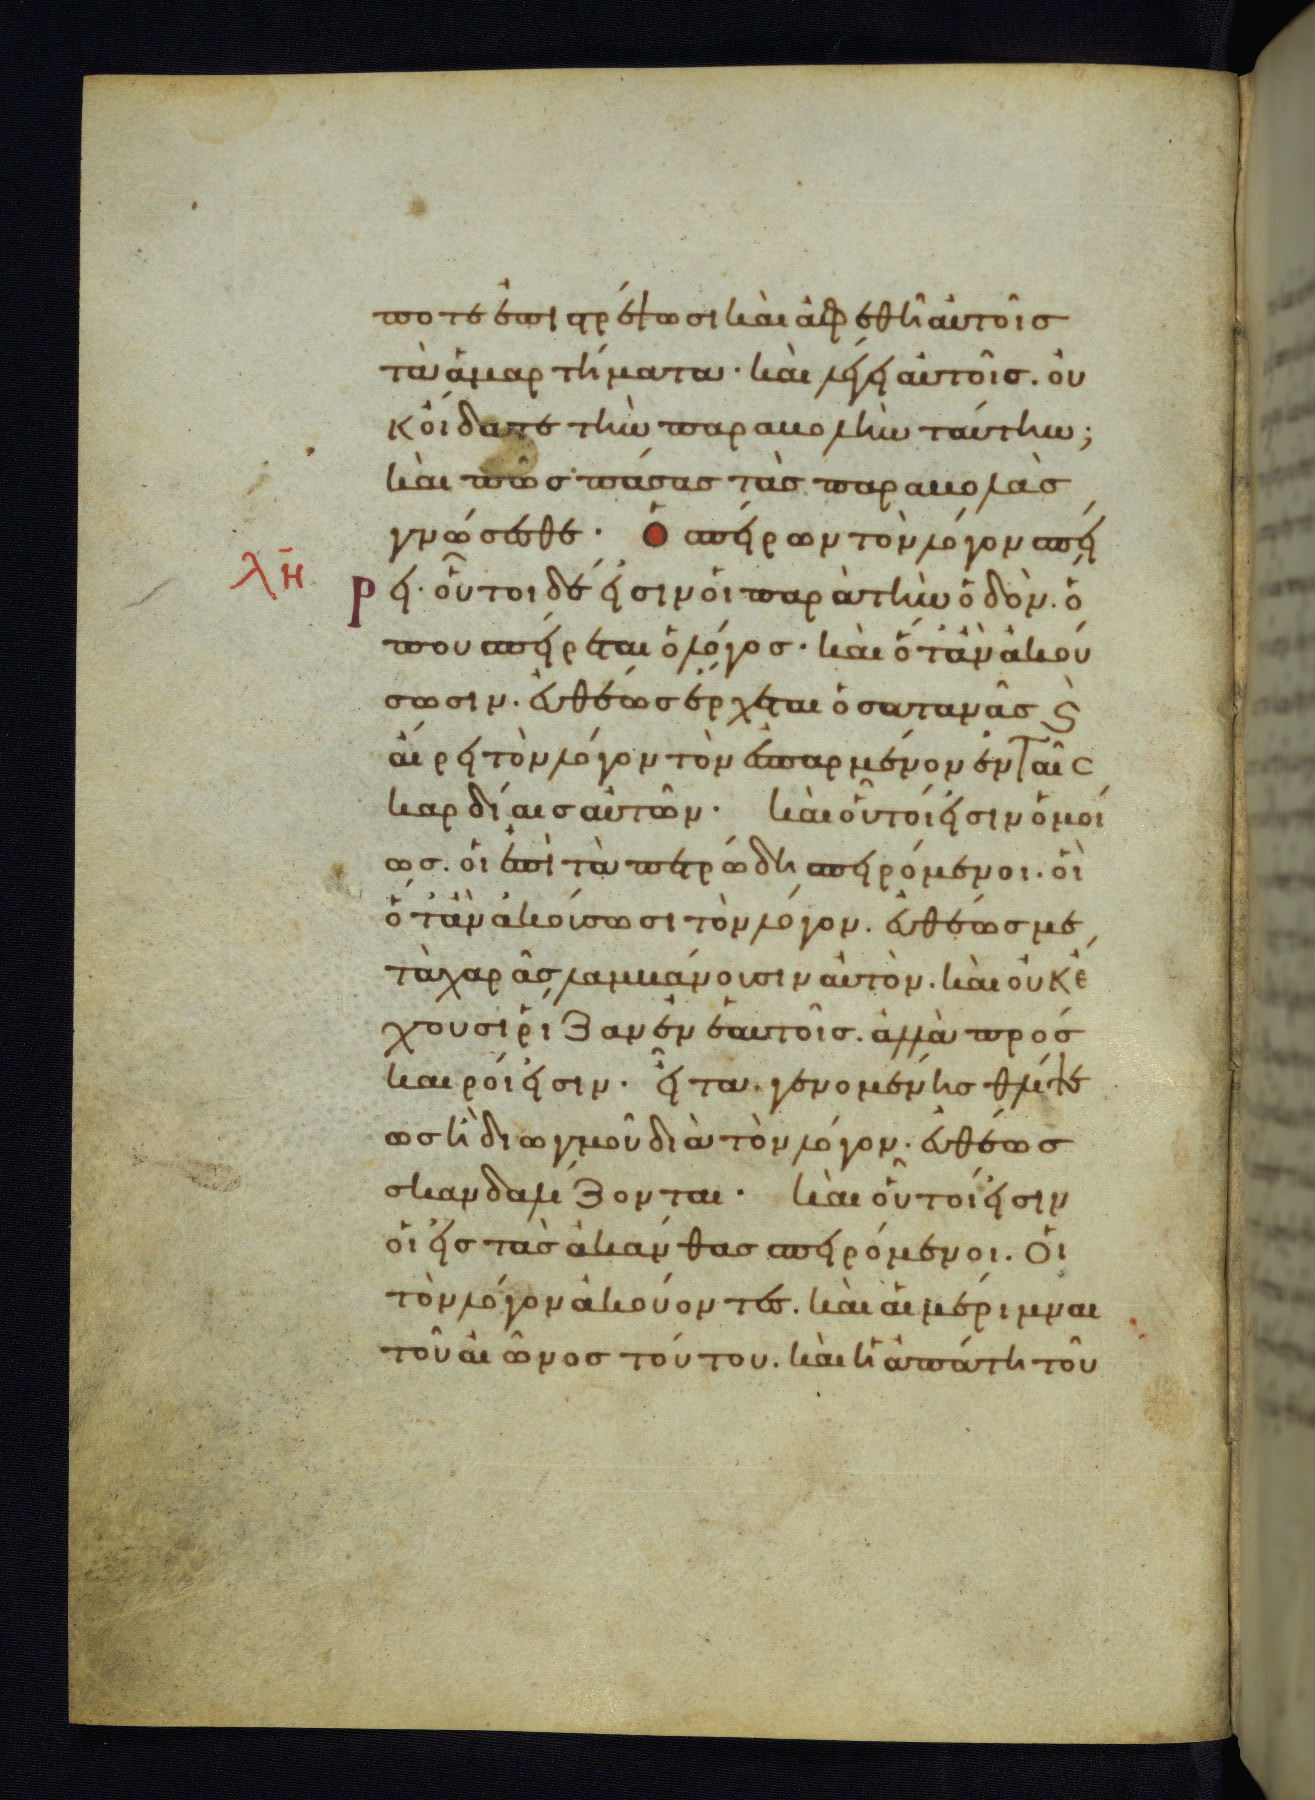 ποτε ἐπιστρέψωσι καὶ ἀφεθῆ αὐτοῖσ
τὰ ἁμαρτήματα· καὶ λέγει αὐτοῖσ. οὐ
κ οἴδατε τὴν παραβολὴν ταύτην;
καὶ πῶσ πάσασ τὰσ παραβολὰσ
γνώσεσθε· Ὁ σπείρων τὸν λόγον σπεί
λη
ρει. οὗτοι δέ εἰσιν οἱ παρὰ τὴν ὁδὸν. ὅ
που σπείρεται ὁ λόγοσ· καὶ ὅταν ἀκού
σωσιν. εὐθέωσ ἔρχεται ὁ σατανᾶσ ϗ
αἴρει τὸν λόγον τὸν ἐσπαρμένον ἐν ταῖσ
καρδίαισ αὐτῶν· καὶ οὗτοί εἰσιν ὁμοί
ωσ. οἱ ἐπὶ τὰ πετρώδη σπειρόμενοι. οἳ
ὅταν ἀκούσωσι τὸν λόγον. εὐθέωσ με
τὰ χαρᾶσ λαμβάνουσιν αὐτὸν. καὶ οὐκ ἔ
χουσι ῥίζαν ἐν ἑαυτοῖσ. ἀλλὰ πρόσ
καιροί εἰσιν· εἶτα γενομένησ θλίψε
ωσ ἢ διωγμοῦ διὰ τὸν λόγον. εὐθέωσ
σκανδαλίζονται· καὶ οὗτοί εἰσιν
οἱ εἰσ τὰσ ἀκάνθασ σπειρόμενοι. οἱ
τὸν λόγον ἀκούοντεσ. καὶ αἱ μέριμναι
τοῦ αἰῶνοσ τούτου. καὶ ἡ ἀπάτη τοῦ